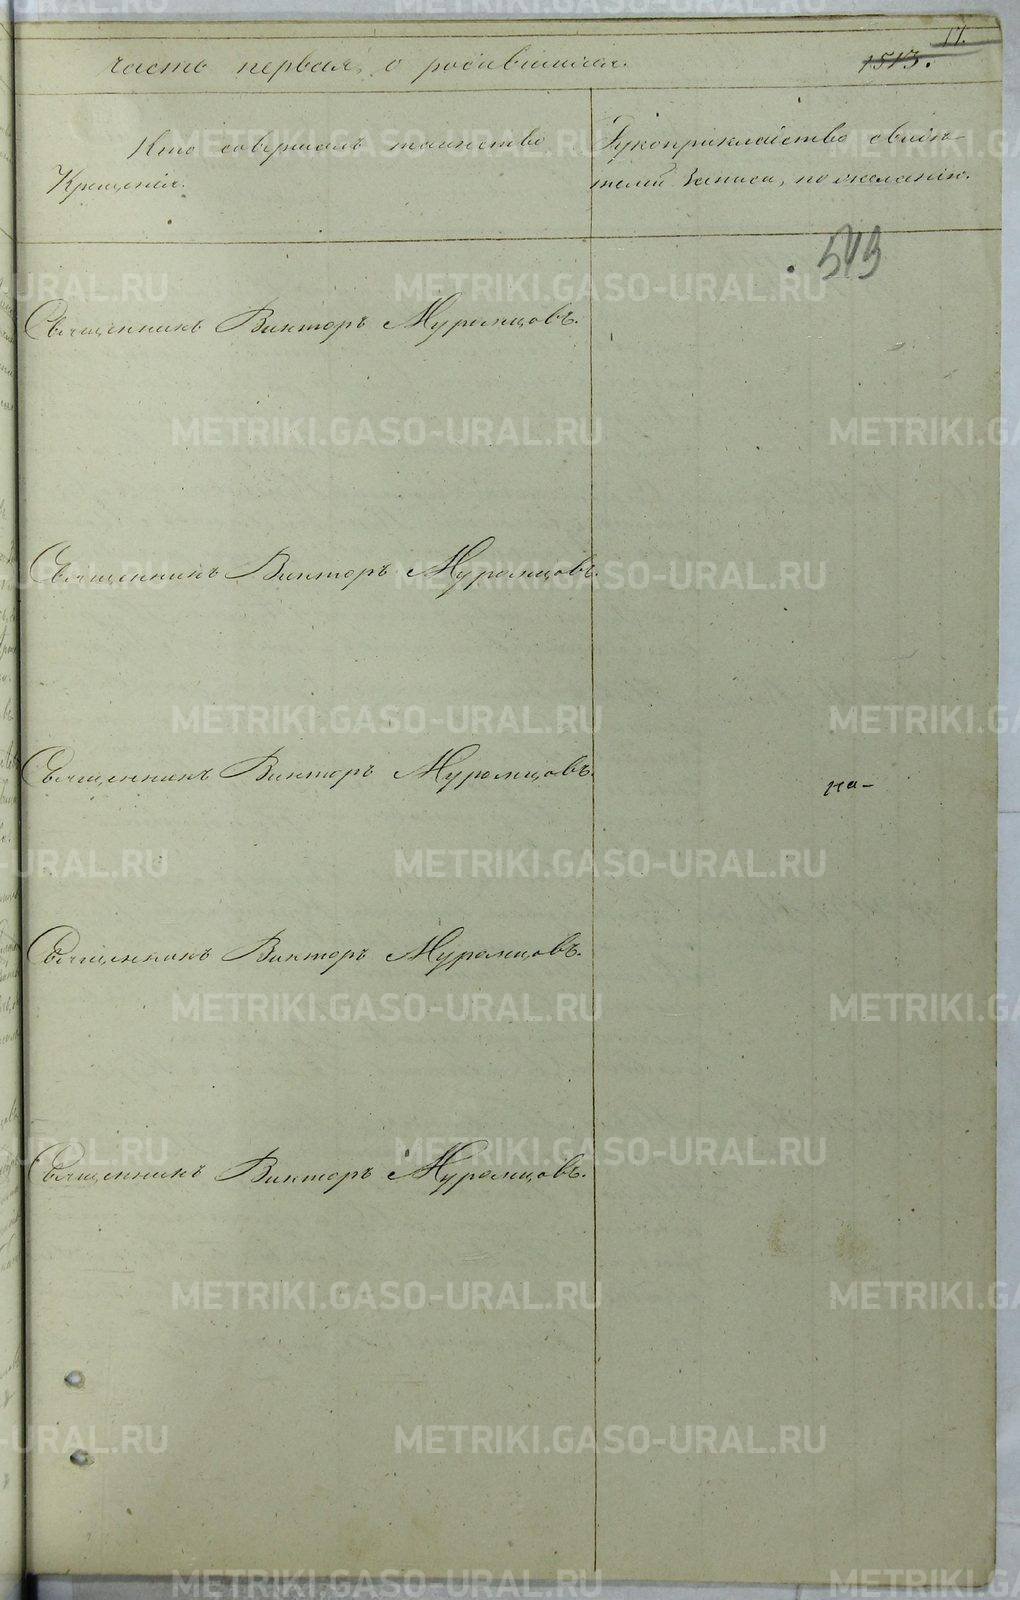 17.
часть первая, о родившихся.
1513.
Кто совершалъ таинство
Крещенія.
Рукоприкладство свидѣ-
телей записи, по желанію.
513
Священникъ Викторъ Муромцовъ.
Священникъ Викторъ Муромцовъ.
Священникъ Викторъ Муромцовъ.
на-
Священникъ Викторъ Муромцовъ.
Священникъ Викторъ Муромцовъ.
METRIKI.GASO-URAL.RU